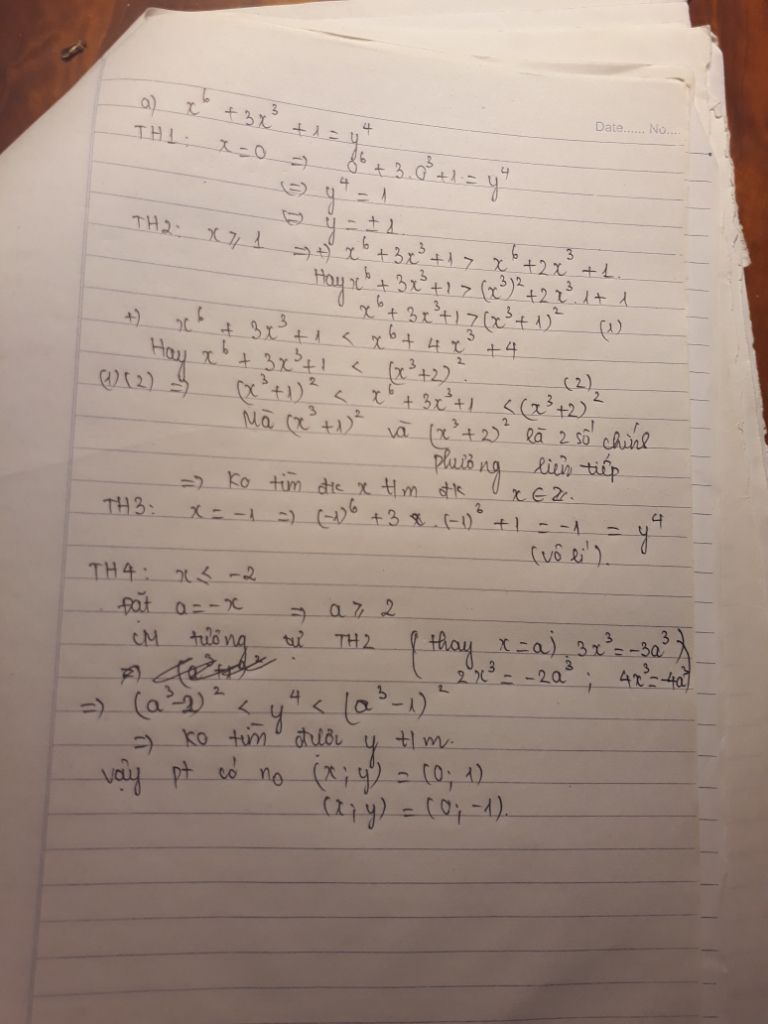 Date...... No....
a) x⁶ + 3x³ + 1 = y⁴
TH1: x=0 => 0⁶ + 3.0³+1 = y⁴
(=) y⁴ = 1
<=> y = ±1
TH2: x ⩾ 1 => +) x⁶+3x³+1 > x⁶+2x³+1.
Hay x⁶+3x³+1 > (x³)²+2x³.1+1
x⁶+3x³+1 > (x³+1)² (1)
+) x⁶ + 3x³+1 < x⁶ + 4x³ + 4
Hay x⁶ + 3x³+1 < (x³+2)². (2)
(1)(2) => (x³+1)² < x⁶+3x³+1 < (x³+2)²
Mà (x³+1)² và (x³+2)² là 2 số chính
phương liên tiếp
=> Ko tìm đk x t/m đk x∈Z.
TH3: x = -1 => (-1)⁶ + 3.(-1)³ + 1 = -1 = y⁴
(Vô lí).
TH4: x ⩽ -2
Đặt a = -x => a ⩾ 2
CM tương tự TH2 (thay x=a) 3x³=-3a³
2x³ = -2a³; 4x³=-4a³)
=> (a³-2)² < y⁴ < (a³-1)²
=> Ko tìm được y t/m.
Vậy pt có no (x;y) = (0;1)
(x;y) = (0;-1).